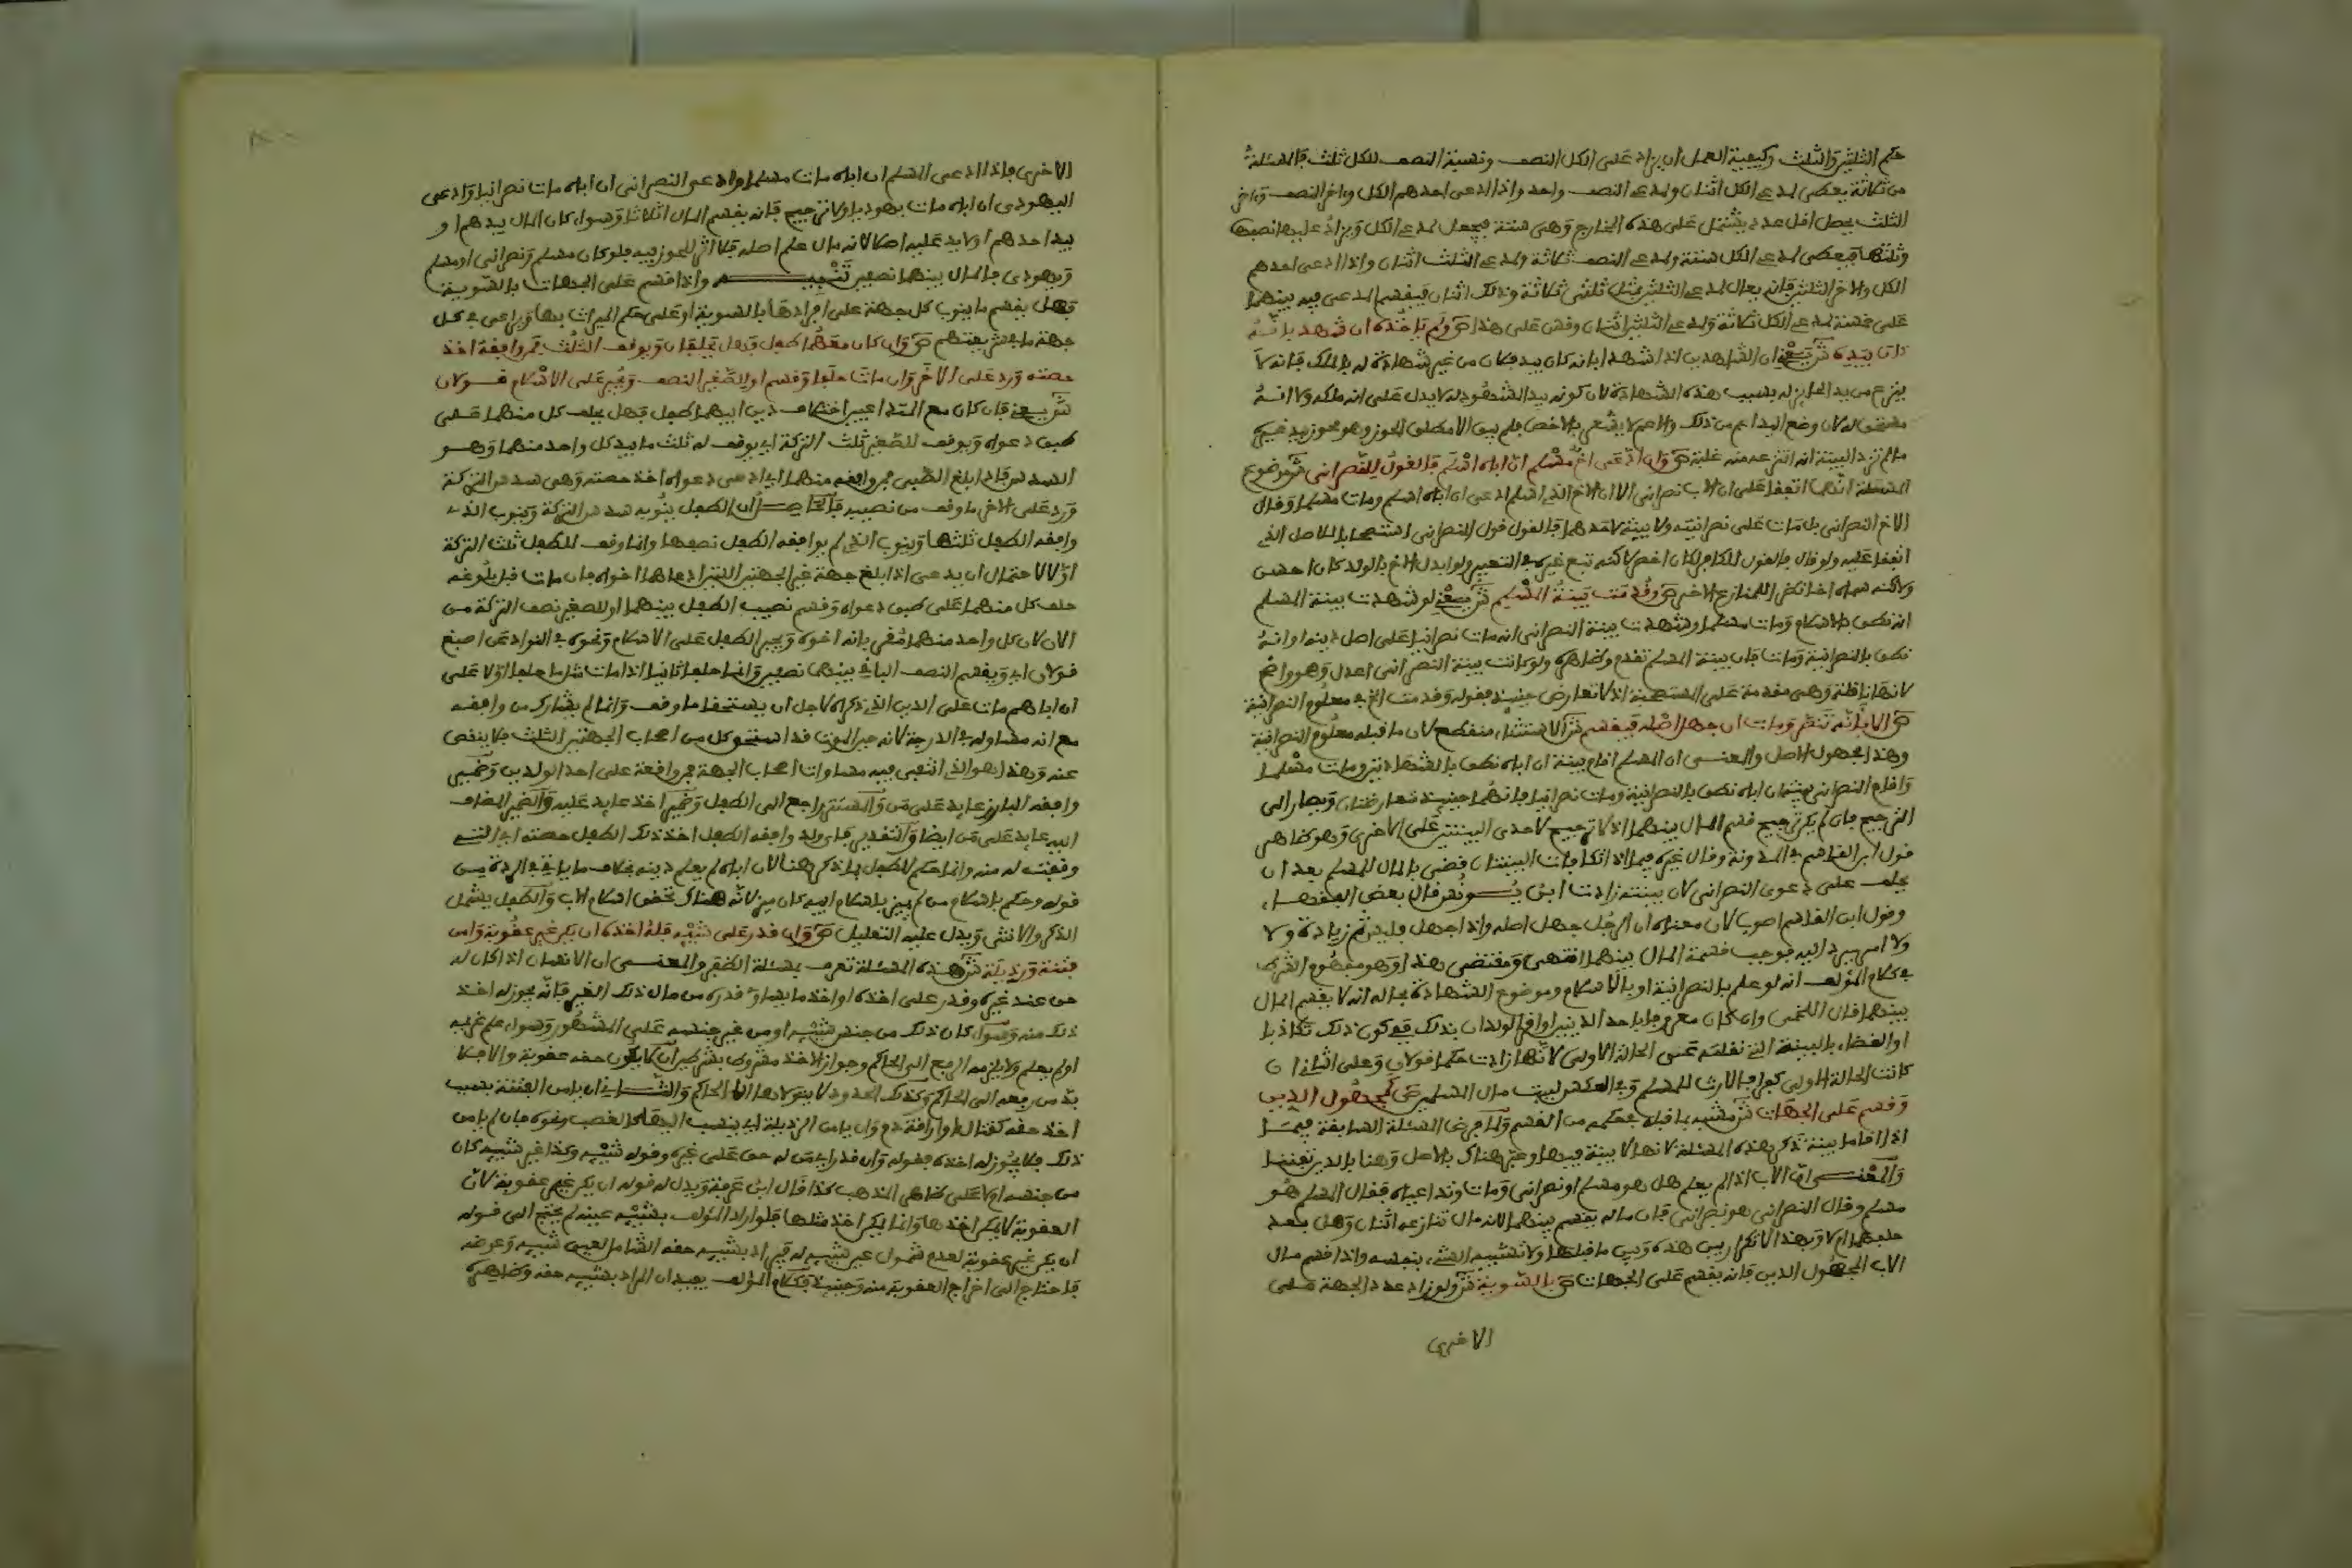 حكم الثلثين والثلث وكيفية العمل ان يزاد على الكل النصف ونسبة النصف للكل ثلث فالمسئلة
من ثلاثة يعطى لمدعي الكل اثنان ولمدعي النصف واحد واذا ادعى احدهم الكل واخر النصف واخر
الثلث يحصل اقل عدد يشتمل على هذه المخارج وهي ستة فيجعل لمدعي الكل ويزاد عليها نصفها
وثلثها فيعطى لمدعي الكل ستة ولمدعي النصف ثلاثة ولمدعي الثلث اثنان واذا ادعى احدهم
الكل والاخر الثلثين فانه يعال لمدعي الثلثين بمثل ثلثي ثلاثة وذلك اثنان فيقسم المدعى فيه بينهما
على خمسة لمدعي الكل ثلاثة ولمدعي الثلثين اثنان وقس على هذا ص ولم ياخذه ان شهد بانه
كان بيده ش يعني ان الشاهدين اذا شهدا بانه كان بيد فلان من غير شهادة له بالملك فانه لا
ينزع من يد الحايز له بسبب هذه الشهادة لان كونه بيد المشهود له لا يدل على انه ملكه ولا انه
مستحق له لان وضع اليد اعم من ذلك والاعم لا يشعر بالاخص فلم يبق الا مطلق الحوز وهو محوز بيد غيره
ما لم تزد البينة انه انتزعه منه غلبة ص وان ادعى اخ مسلم ان اباه اسلم فالقول للنصراني ش موضوع
المسئلة انهما اتفقا على ان الاب نصراني الا ان الاخ الذي اسلم ادعى ان اباه اسلم ومات مسلما وقال
الاخ النصراني بل مات على نصرانيته ولا بينة لاحدهما فالقول قول النصراني استصحابا للاصل الذي
اتفقا عليه ولو قال فالقول للكافر لكان اخصر لاكنه تبع غيره في التعبير ولو ابدل الاخ بالولد كان احسن
ولاكنه سماه اخا نظرا للمنازع الاخر ص وقدمت بينة المسلم ش يعني لو شهدت بينة المسلم
انه نطق بالاسلام ومات مسلما وشهدت بينة النصراني انه مات نصرانيا على اصل دينه او انه
نطق بالنصرانية ومات فان بينة المسلم تقدم وظاهره ولو كانت بينة النصراني اعدل وهو واضح
لانها ناقلة وهي مقدمة على المستصحبة اذ لا تعارض حينئذ فقوله وقدمت الخ في معلوم النصرانية
ص الا بانه تنصر ومات ان جهل اصله فيقسم ش الاستثناء منقطع لان ما قبله معلوم النصرانية
وهذا مجهول الاصل والمعنى ان المسلم اقام بينة ان اباه نطق بالشهادتين ومات مسلما
واقام النصراني بينة ان اباه نطق بالنصرانية ومات نصرانيا فانهما حينئذ متعارضتان ويصار الى
الترجيح فان لم يكن ترجيح قسم المال بينهما اذ لا ترجيح لاحدى البينتين على الاخرى وهو ظاهر
قول ابن القاسم في المدونة وقال غيره فيها اذا تكافات البينتان قضي بالمال للمسلم بعد ان
يحلف على دعوى النصراني لان بينته زادت ابن يونس قال بعض الفقهاء
وقول ابن القاسم اصوب لان معناه ان الرجل جهل اصله واذا جهل فليس ثم زيادة ولا
ولا امر يرد اليه فوجب قسمة المال بينهما انتهى ومقتضى هذا وهو مفهوم الشرط
في كلام المؤلف انه لو علم بالنصرانية او بالاسلام وموضوع الشهادة بحاله انه لا يقسم المال
بينهما قال اللخمي وان كان معروفا باحد الدينين او اقر الولدان بذلك فيكون ذلك تكاذبا
او القضاء بالبينة التي نقلته عن الحالة الاولى لانها زادت حكما قولان وعلى الثاني ان
كانت الحالة الاولى كفرا فالارث للمسلم وفي العكس لبيت مال المسلمين ص كمجهول الدين
وقسم على الجهات ش مشبه بما قبله بحكمه من القسم ولما فرغ من المسئلة السابقة فيما
اذا اقاما بينة ذكر هذه المسئلة لانها لا بينة فيها وعبر هناك بالاصل وهنا بالدين تفننا
والمعنى ان الاب اذا لم يعلم هل هو مسلم او نصراني ومات وتداعياه فقال المسلم هو
مسلم وقال النصراني هو نصراني فان ماله يقسم بينهما لانه مال تنازعه اثنان وهل بعد
حلفهما ام لا وبهذا لا تكرار بين هذه وبين ما قبلها ولا تشبيه الشيء بنفسه واذا قسم مال
الاب المجهول الدين فانه يقسم على الجهات ص بالسوية ش ولو زاد عدد الجهة على
الاخرى
الاخرى فاذا ادعى المسلم ان اباه مات مسلما وادعى النصراني ان اباه مات نصرانيا وادعى
اليهودي ان اباه مات يهوديا ولا ترجيح فانه يقسم المال اثلاثا وسواء كان المال بيدهم او
بيد احدهم او لا يد عليه اصلا لانه مال علم اصله فلا اثر للحوز فيه فلو كان مسلم ونصراني او مسلم
ويهودي فالمال بينهما نصفين تنبيه واذا قسم على الجهات بالسوية
فهل يقسم ما ينوب كل جهة على افرادها بالسوية او على حكم الميراث بها ويراعى في كل
جهة ما يعتبر بعضهم ص وان كان معهما طفل فهل يحلفان ويوقف الثلث فمن وافقه اخذ
حصته ورد على الاخر وان مات حلفا وقسم او للصغير النصف ويجبر على الاسلام قولان
ش يعني فان كان مع المتداعيين اختلاف دين ابيهما طفل فهل يحلف كل منهما على
طبق دعواه ويوقف للصغير ثلث التركة اي يوقف له ثلث ما بيد كل واحد منهما وهو
السدس فاذا بلغ الصبي فمن وافقه منهما اي ادعى دعواه اخذ حصته وهي سدس التركة
ورد على الاخر ما وقف من نصيبه فالحاصل ان الطفل ينوبه سدس التركة وينوب الذي
وافقه الطفل ثلثها وينوب الذي لم يوافقه الطفل نصفها وانما وقف للطفل ثلث التركة
اولا لاحتمال ان يدعي اذا بلغ جهة غير الجهتين اللتين ادعاهما اخواه فان مات قبل بلوغه
حلف كل منهما على طبق دعواه وقسم نصيب الطفل بينهما او للصغير نصف التركة من
الان لان كل واحد منهما مقر بانه اخوه ويجبر الطفل على الاسلام ونحوه في النوادر عن اصبغ
قولان اي ويقسم النصف الباقي بينهما نصفين وانما حلفا ثانيا اذا مات لما حلفا اولا على
ان اباهم مات على الدين الذي ذكراه لاجل ان يستحقا ما وقف وانما لم يشارك من وافقه
مع انه مساو له في الدرجة لانه حين الموت قد استحق كل من اصحاب الجهتين الثلث فلا ينقص
عنه وبهذا هو الذي انتفى فيه مساوات اصحاب الجهة فمن وافقه على احد الولدين وضمير
وافقه البارز عايد على من والمستتر راجع الى الطفل وضمير اخذ عايد عليه والضمير المضاف
اليه عايد على من ايضا والتقدير فاي ولد وافقه الطفل اخذ ذلك الطفل حصته اي التي
وقفت له منه وانما حكم للطفل بما ذكر هنا لان اباه لم يعلم دينه بخلاف ما ياتي في الردة من
قوله وحكم باسلام من لم يميز باسلام ابيه كان ميز لانه هناك تحقق اسلام الاب والطفل يشمل
الذكر والانثى ويدل عليه التعليل ص وان قدر على شيئه فله اخذه ان يكن غير عقوبة وامن
فتنة ورذيلة ش هذه المسئلة تعرف بمسئلة الظفر والمعنى ان الانسان اذا كان له
حق عند غيره وقدر على اخذه او اخذ ما يساوي قدره من مال ذلك الغير فانه يجوز له اخذ
ذلك منه وسواء كان ذلك من جنس شيئه او من غير جنسه على المشهور وسواء علم غريمه
اولم يعلم ولا يلزمه الرفع الى الحاكم وجواز الاخذ مشروط بشرطين ان لا يكون حقه عقوبة والا فلا
بد من رفعه الى الحاكم وكذلك الحدود لا يتولاها الا الحاكم والثاني ان يامن الفتنة بسبب
اخذ حقه كقتال او اراقة دم وان يامن الرذيلة اي ينسب اليها كالغصب ونحوه فان لم يامن
ذلك فلا يجوز له اخذه فقوله وان قدر اي من له حق على غيره وقوله شيئه وكذا غير شيئه كان
من جنسه او لا على ظاهر المذهب كذا قال ابن عرفة ويدل له قوله ان يكن غير عقوبة لان
العقوبة لا يمكن اخذها وانما يمكن اخذ مثلها فلو اراد المؤلف بشيئه عينه لم يحتج الى قوله
ان يكن غير عقوبة لعدم شمول عين شيئه له فيراد بشيئه حقه الشامل لعين شيئه وعوضه
فاحتاج الى اخراج العقوبة منه وحينئذ فكلام المؤلف يفيد ان المراد بشيئه حقه وظاهره